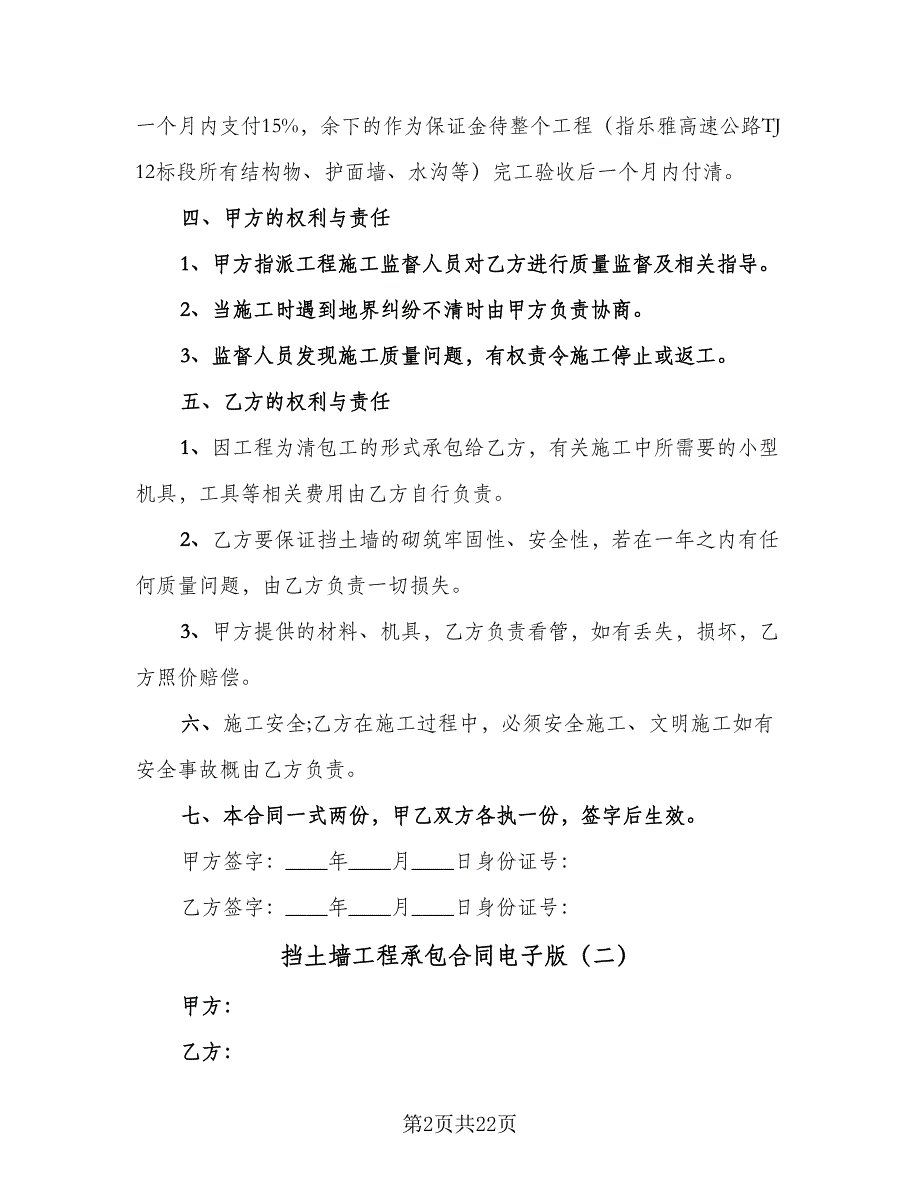 一个月内支付15%，余下的作为保证金待整个工程（指乐雅高速公路TJ
12标段所有结构物、护面墙、水沟等）完工验收后一个月内付清。
四、甲方的权利与责任
1、甲方指派工程施工监督人员对乙方进行质量监督及相关指导。
2、当施工时遇到地界纠纷不清时由甲方负责协商。
3、监督人员发现施工质量问题，有权责令施工停止或返工。
五、乙方的权利与责任
1、因工程为清包工的形式承包给乙方，有关施工中所需要的小型
机具，工具等相关费用由乙方自行负责。
2、乙方要保证挡土墙的砌筑牢固性、安全性，若在一年之内有任
何质量问题，由乙方负责一切损失。
3、甲方提供的材料、机具，乙方负责看管，如有丢失，损坏，乙
方照价赔偿。
六、施工安全;乙方在施工过程中，必须安全施工、文明施工如有
安全事故概由乙方负责。
七、本合同一式两份，甲乙双方各执一份，签字后生效。
甲方签字：____年____月____日身份证号：
乙方签字：____年____月____日身份证号：
挡土墙工程承包合同电子版（二）
甲方：
乙方：
第2页共22页